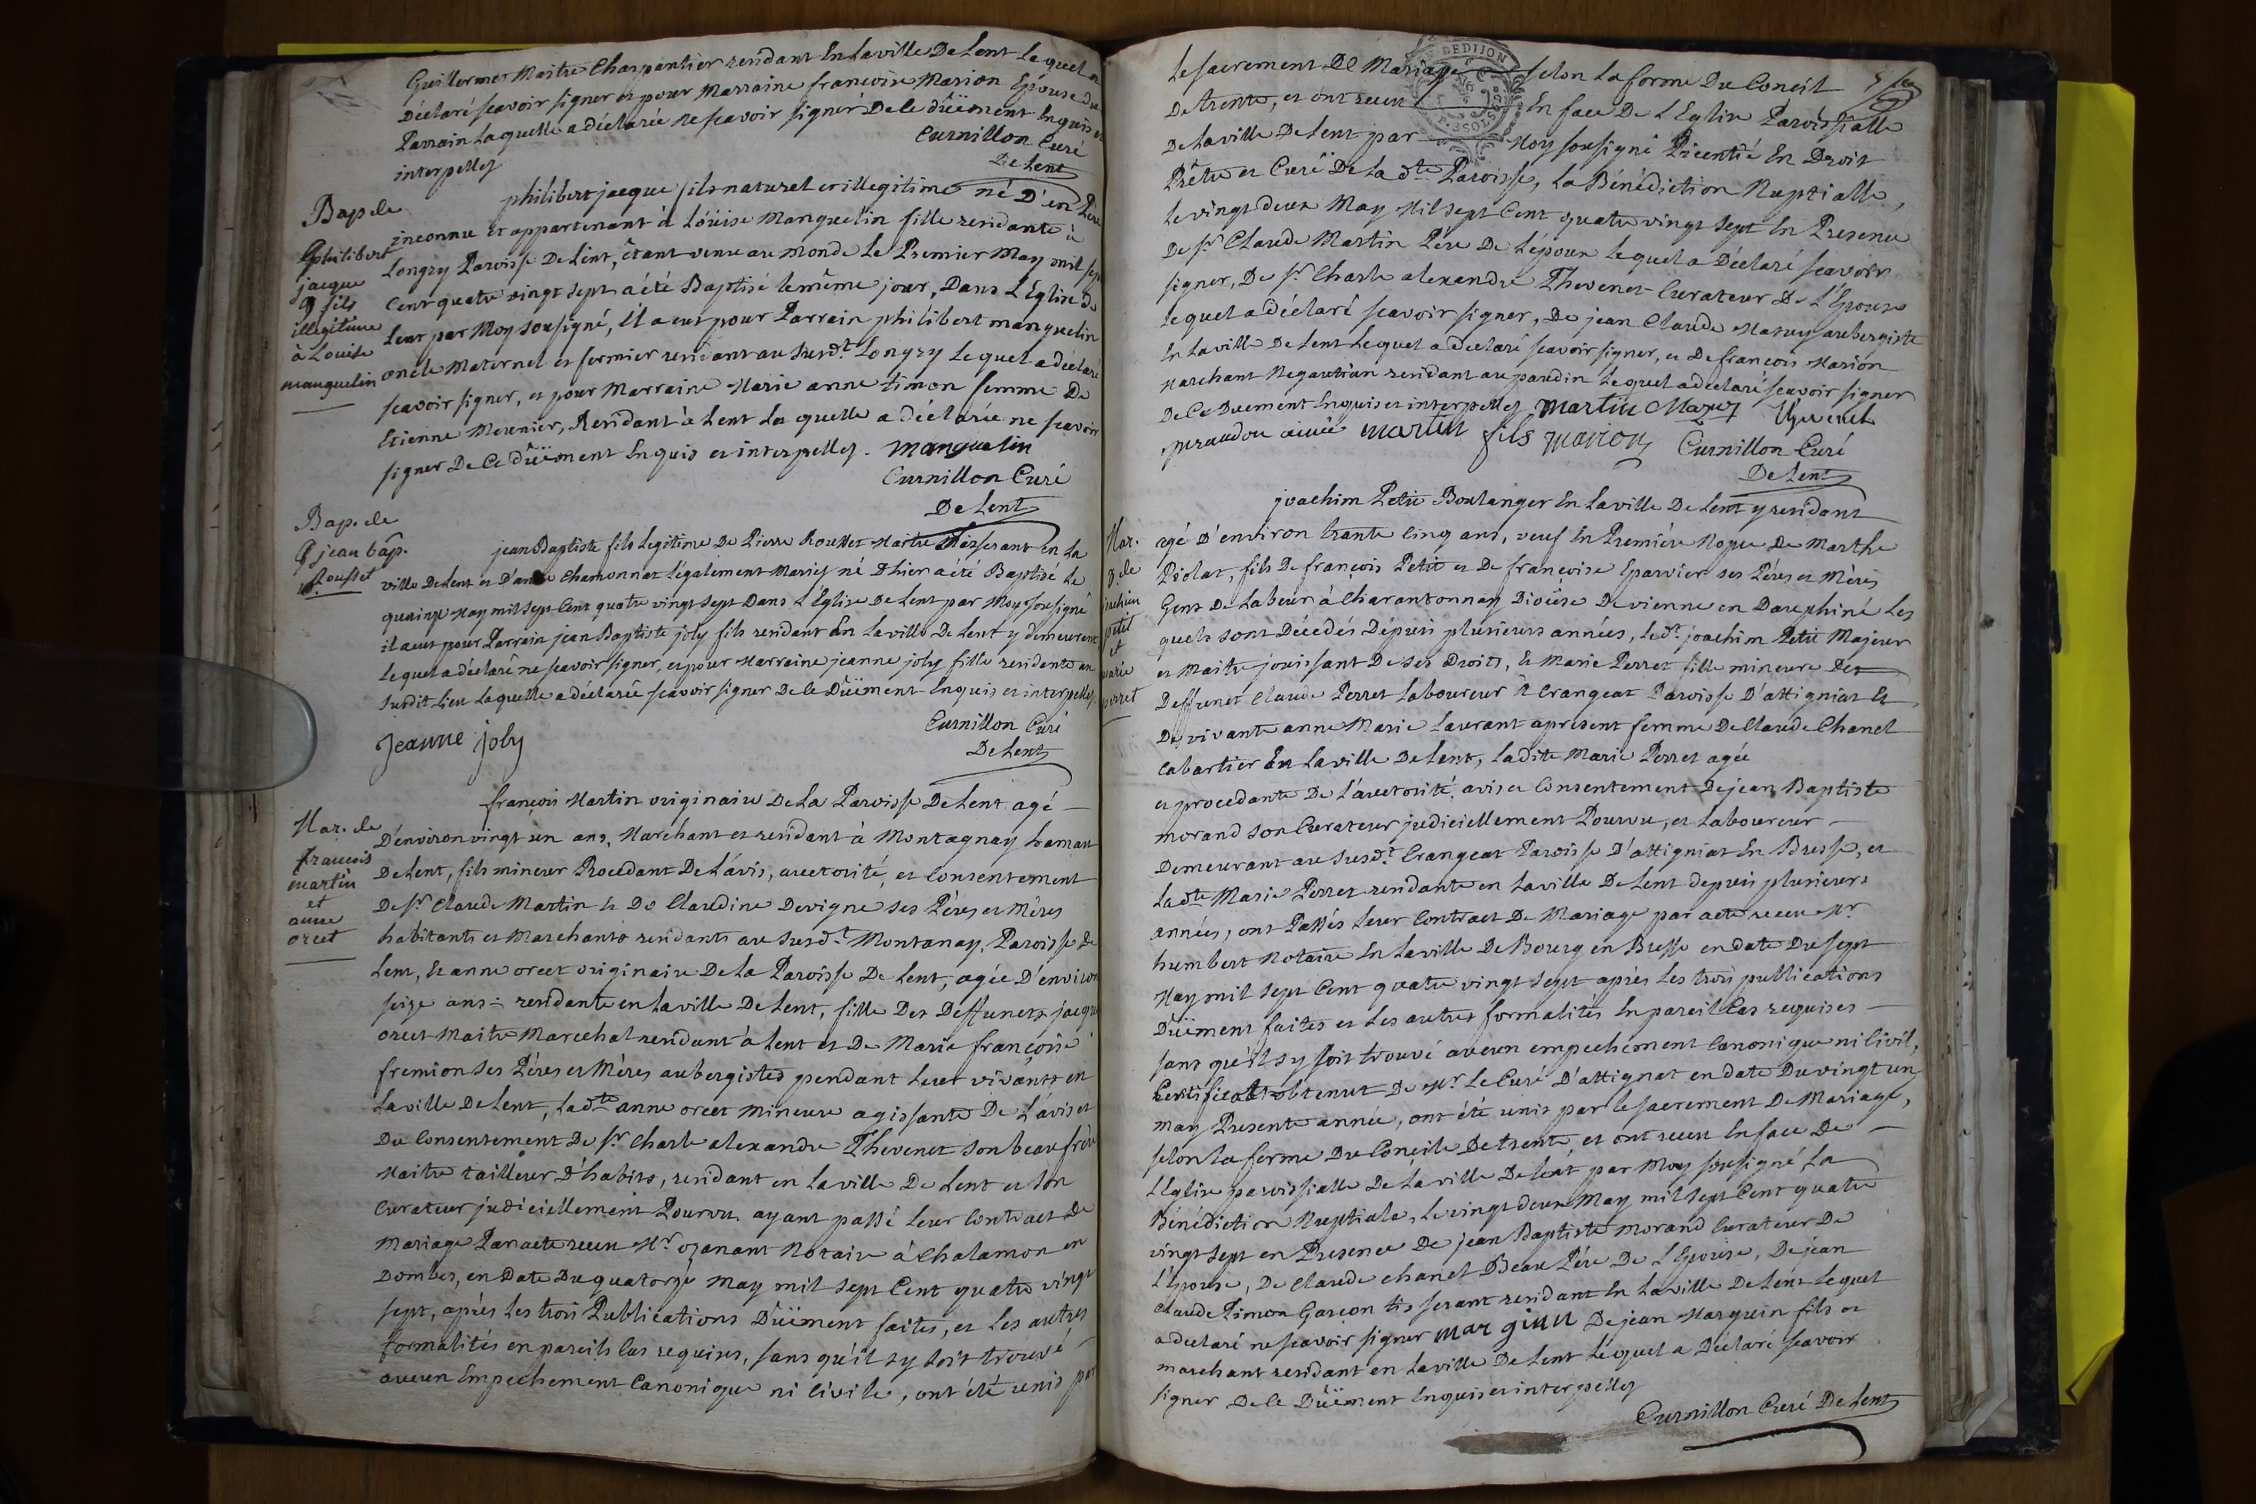 Guillermet Maitre Charpantier residant En la ville De Lent Laquel a
Déclaré scavoir signer et pour Marraine francoise Marion Epouse du
Parrain Laquelle a déclarée ne scavoir signer De ce dûëment Enquis et
interpellés
Curnillon Curé
De Lent
Bap. de
philibert
jacque
fils
illegitime
à Louise
manguelin
philibert jacque fils naturel et illegitime né D'en Pere
inconnu et appartenant à Loüise Manguelin fille residante à
Longry Paroisse De Lent, êtant venu au monde Le Premier May mil sept
Cent quatre vingt sept a été Baptisé le même jour, Dans L'Eglise de
Lent par Moy sousigné, il a eut pour Parrain philibert manguelin
oncle Maternel et fermier residant au susd.t Longry Lequel a déclaré
scavoir signer, et pour Marraine Marie anne timon femme De
Etienne Meunier, Residant à Lent La quelle a déclarée ne scavoir
signer De Ce dûëment Enquis et interpellés. manguelin
Curnillon Curé
De Lent
Bap. de
jean bap.
Rousset
jean Baptiste fils Legitime De Pierre Rousset Maitre Tisserant en La
ville De Lent et D'anne Chamonnat Légalement Mariés né D'hier a été Baptisé Le
quinze May mil sept Cent quatre vingt sept Dans L'Eglise De Lent par Moy sousigné
il a eut pour Parrain jean Baptiste joly fils residant En La ville De Lent y demeurant
Lequel a déclaré ne scavoir signer, et pour Marraine jeanne joly fille residente au
susdit Lieu Laquelle a déclarée scavoir signer De Ce Dûëment Enquis et interpellés
Jeanne joly
Curnillon Curé
De Lent
Mar. de
francois
martin
et
anne
orcet
françois Martin originaire De La Paroisse De Lent agé
D'environ vingt un ans, Marchant et residant à Montagnay hamau
De Lent, fils mineur Procedant De L'avis, auctorité, et Consentement
De Sr Claude Martin Et De Claudine Devigne ses Péres et Méres
habitants et Marchants residants au susd.t Montanay, Paroisse de
Lent, Et anne orcet originaire De La Paroisse De Lent, agée D'environ
seize ans residante en La ville De Lent, fille Des Deffunets jacque
orcet Maitre Marechal residant à Lent et De Marie françoise
fremion ses Péres et Méres aubergistes pendant Leur vivants en
La ville De Lent, Ladte anne orcet mineure agissante De L'avis et
Du Consentement De Sr Charle alexandre Thevenet son beau frère
Maitre tailleur D'habits, residant en La ville De Lent et son
Curateur judiciellement Pourvu, ayant passé Leur Contract de
Mariage Par acte recu Mr ozanant Notaire à Chalamon en
Dombes, en Date Du quatorze May mil sept Cent quatre vingt
sept, après Les trois Publications Dûëment faites, et Les autres
formalités en pareils Cas requises, sans qu'il s'y soit trouvé
aucun Empechement Canonique ni civile, ont été unis par
Le sacrement De Mariage selon La forme Du Concil
De trente, et ont recu En face De L'Eglise Paroissialle
De La ville De Lent par Moy sousigné Licentié En Droit
Prêtre et Curé De La dte Paroisse, La Bénédiction Nuptialle,
Le vingt deux May Mil sept Cent quatre vingt sept En Presence
De Sr Claude Martin Pére De L'époux Lequel a Déclaré scavoir
signer, De Sr Charle alexandre Thevenet Curateur De L'Epouse
Lequel a déclaré scavoir signer, De jean Claude Maruy aubergiste
En La ville De Lent Lequel a declaré scavoir signer, et De françois Marion
Marchant Negautian residant au paudin Lequel a declaré scavoir signer
De Ce Duement Enquis et interpellés martin Maruy Thevenet
peraudou ainée martin fils marion Curnillon Curé
De Lent
Mar.
de
joachim
petit
et
marie
perret
joachim Petit Boulanger En La ville De Lent y residant
agé D'environ trante Cinq ans, veuf En Premiére Nopce De Marthe
Piolat, fils De françois Petit et De françoise Eparvier ses Péres et Méres
Gens De Labeur à Charantonnay Diocése De vienne en Dauphiné Les
quels sont Décedés Dépuis plusieurs années, Ledt joachim Petit Majeur
et Maitre jouissant De ses Droits, Et Marie Perret fille mineure Des
Deffunet Claude Perret Laboureur à Crangeat Paroisse D'attigniat Et
De vivante anne Marie Laurant apresent femme De Claude Chanel
Cabartier En La ville De Lent, Ladite Marie Perret agée
et procedante De L'auctorité, avis et Consentement De jean Baptiste
morand son Curateur judiciellement Pourvu, et Laboureur
Demeurant au susd.t Crangeat Paroisse D'attigniat En Bresse, et
La dte Marie Perret residante en La ville De Lent depuis plusieurs
années, ont Passés Leur Contract De Mariage par acte recu Mr
humbert Notaire En La ville De Bourg en Bresse en date Du sept
May mil sept Cent quatre vingt sept après Les trois publications
Dûëment faites et Les autres formalités En pareil Cas requises
sans qu'il s'y soit trouvé aucun empechement Canonique ni Civil,
Certificat obtenut De Mr Le Curé D'attignat en date Du vingt un
may Presente année, ont été unis par le sacrement De Mariage,
selon La forme Du Concile De trente, et ont recu En face De
L'Eglise paroissialle De La ville De Lent par Moy sousigné La
Bénédiction Nuptiale, Le vingt deux May mil sept Cent quatre
vingt sept en Presence De jean Baptiste Morand Curateur De
L'Epouse, De Claude chanel Beau Pére De L'Epouse, De jean
Claude Timon Garçon tisserant residant En La ville De Lent Lequel
a declaré ne scavoir signer marguin De jean Marguin fils et
marchant residant en La ville De Lent Lequel a Déclaré scavoir
signer De Ce Dûëment Enquis et interpellés
Curnillon Curé De Lent